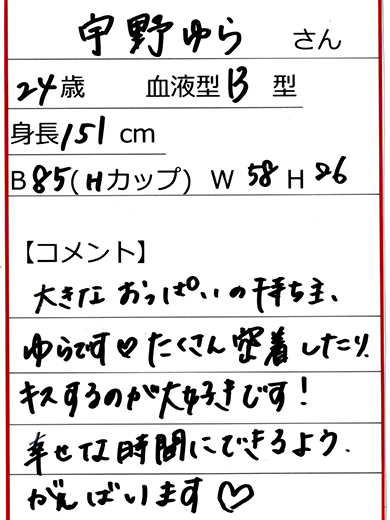 宇野ゆら さん
24歳 血液型B型
身長151cm
B85(Hカップ) W58 H86
【コメント】
大きな おっぱいの持ち主、
ゆらです♡たくさん密着したり、
キスするのが大好きです!
幸せな時間にできるよう、
がんばります♡